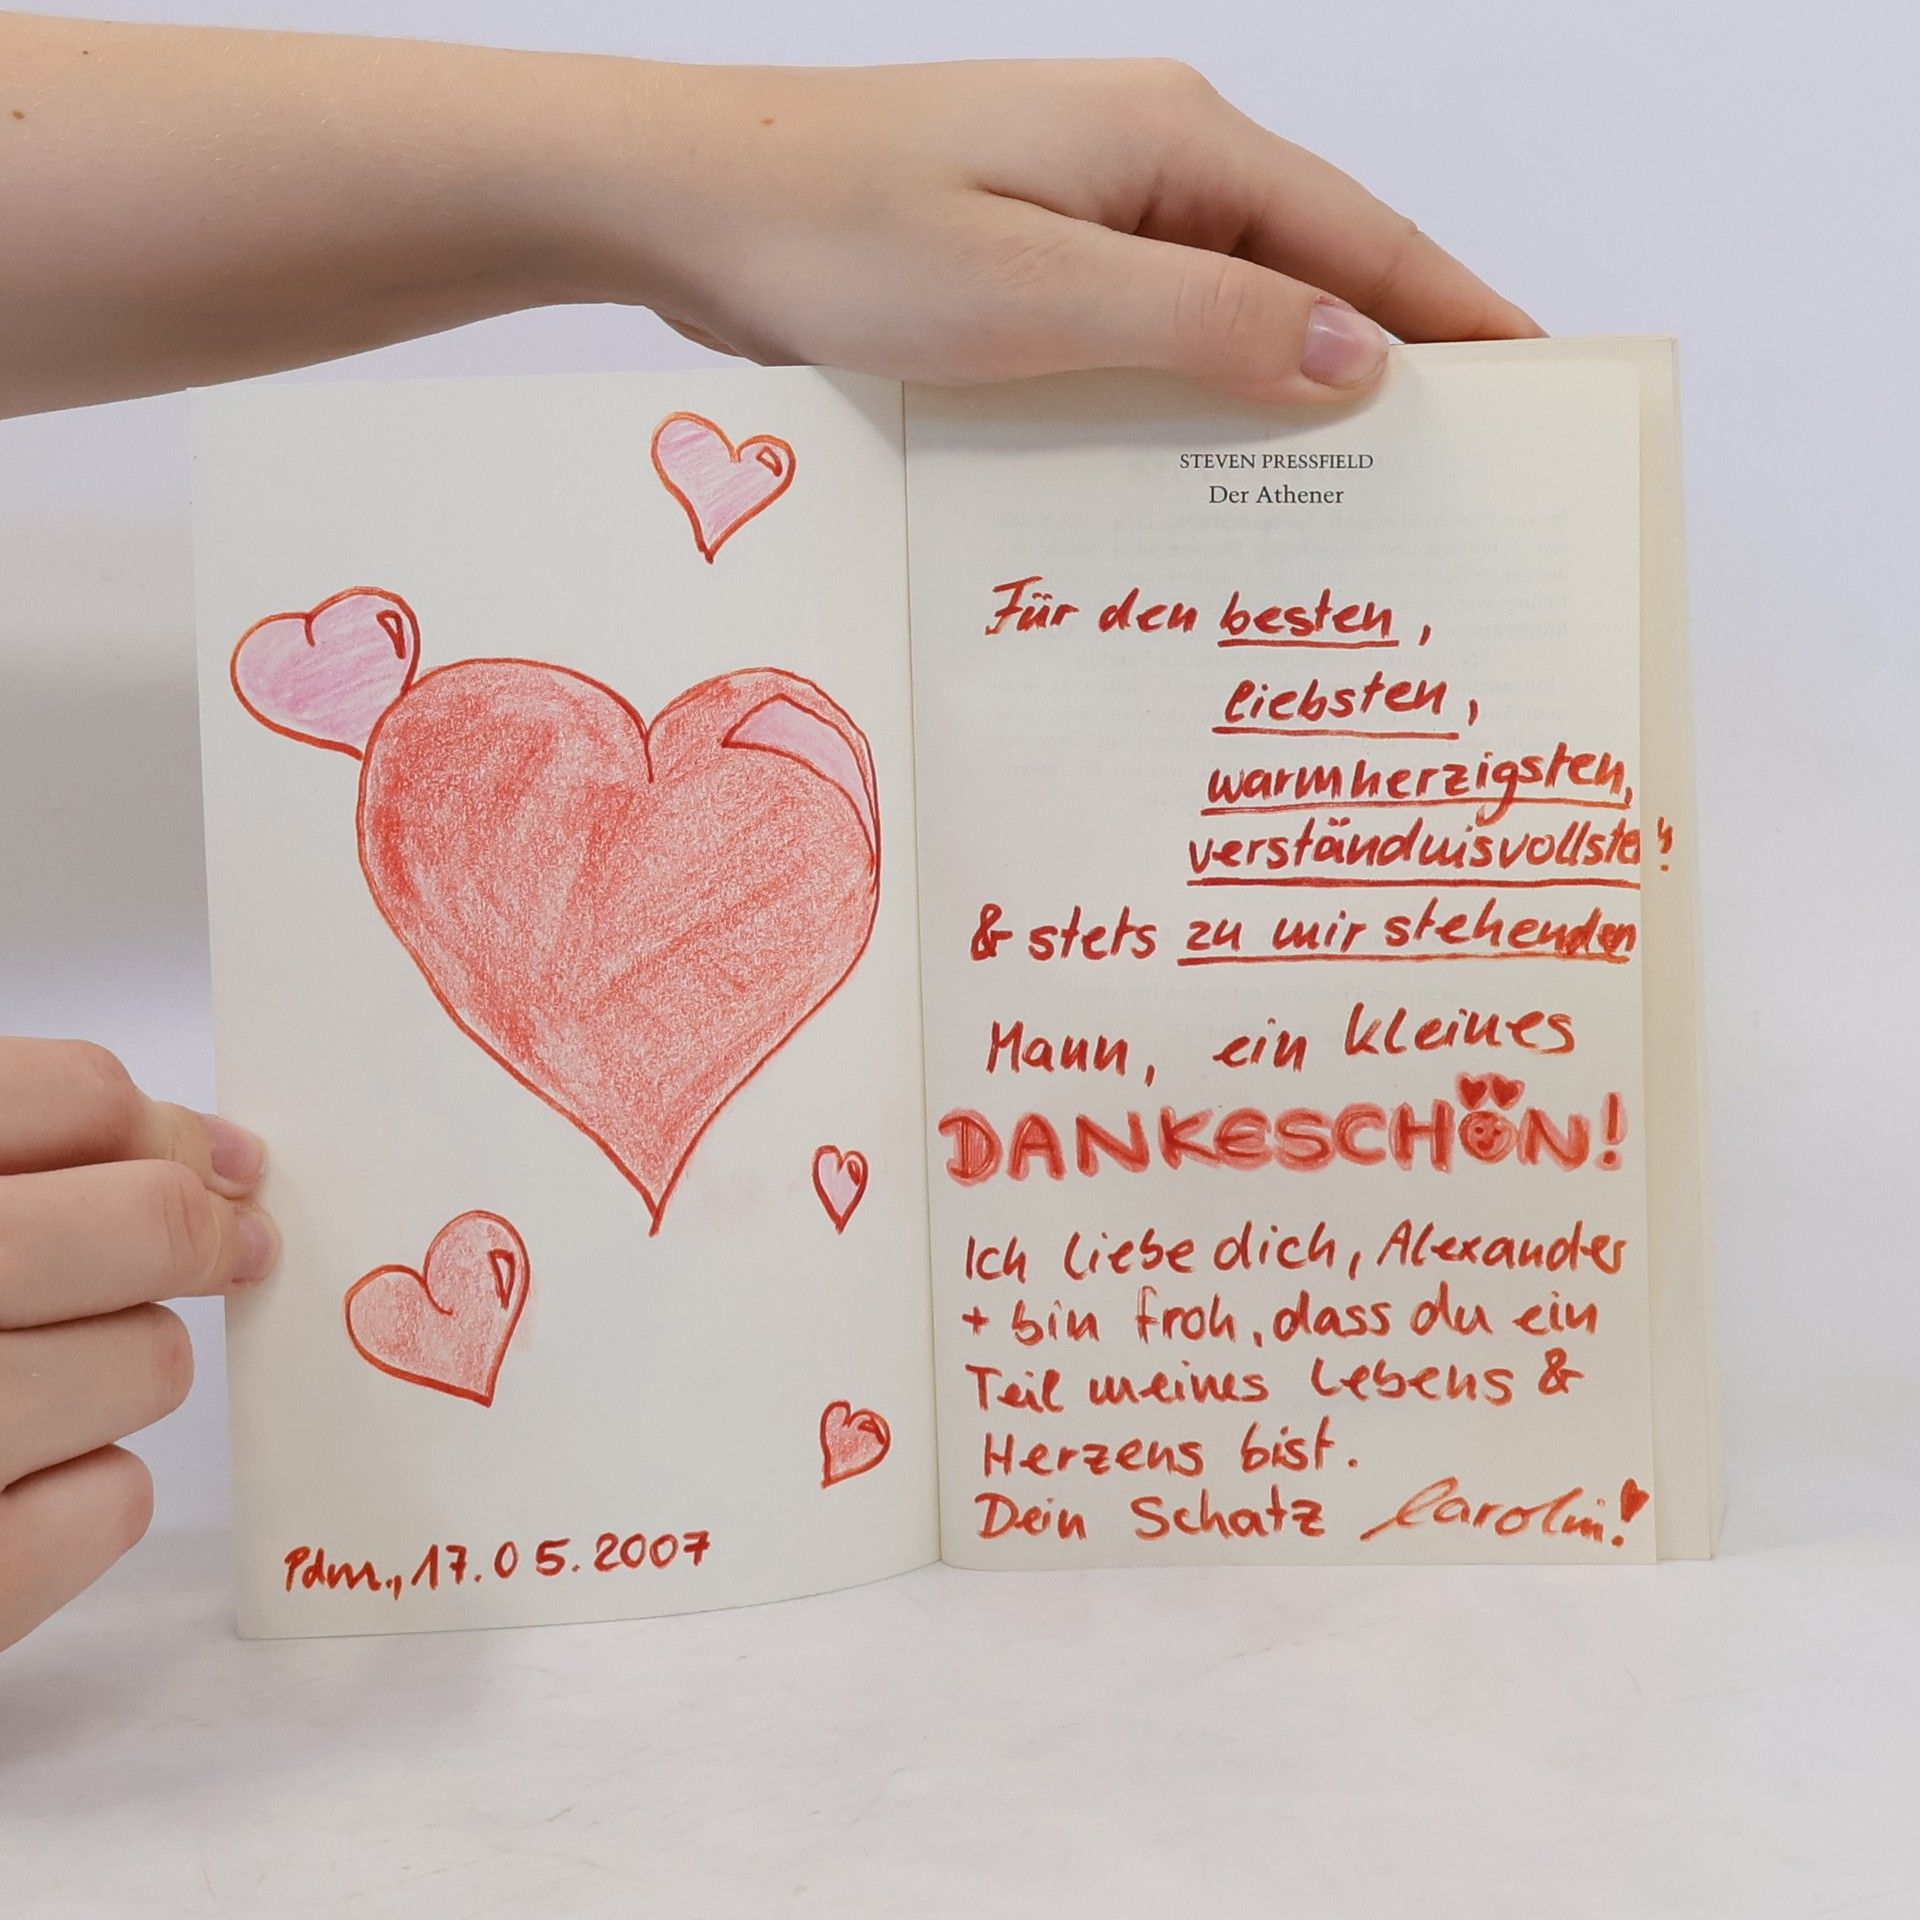 Pdm., 17.05.2007
STEVEN PRESSFIELD
Der Athener
Für den besten,
liebsten,
warmherzigsten,
verständnisvollsten
& stets zu mir stehenden
Mann, ein kleines
DANKESCHÖN!
Ich liebe dich, Alexander
+ bin froh, dass du ein
Teil meines Lebens &
Herzens bist.
Dein Schatz Carolin!